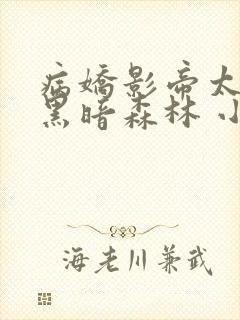 病嬌影帝太
黑暗森林 小
海老川兼武